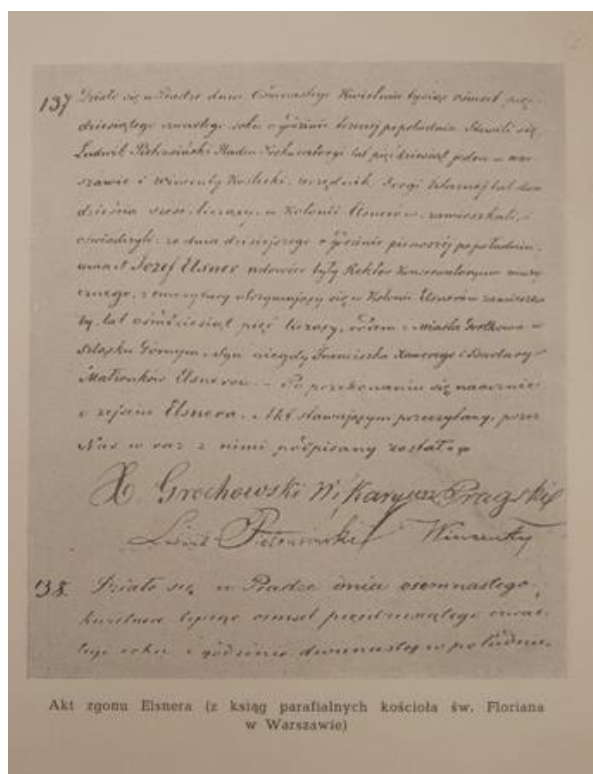 137 Działo się w Pradze dnia Ośmnastego Kwietnia tysiąc ośmset pięć-
dziesiątego czwartego roku o godzinie popołudniu. Stawili się
Ludwik Pietrasiński Radca Prokuratoryi lat pięćdziesiąt jeden w War-
szawie i Wincenty urzędnik Drogi Żelaznej lat dwa-
dzieścia sześć liczący, w Kolonii Elsnerów zamieszkali, i
oświadczyli, że dnia dzisiejszego o godzinie pierwszej popołudniu,
umarł Józef Elsner wdowiec były Rektor Konserwatoryum muzy-
cznego, z emerytury utrzymujący się w Kolonii Elsnerów zamieszka-
ły, lat ośmdziesiąt pięć liczący, rodem z miasta Grotkowa w
Szląsku Górnym, syn niegdy Franciszka Xawerego i Barbary
Małżonków Elsnerów. – Po przekonaniu się naocznie
o zejściu Elsnera. Akt stawającym przeczytany, przez
Nas w raz z nimi podpisany został.
X. Grochowski Wikaryusz Pragski
Ludwik Pietrasiński Wincenty
138. Działo się w Pradze dnia osemnastego
kwietnia tysiąc osmset pięćdziesiątego czwar-
tego roku o godzinie dwunastej w południe.
Akt zgonu Elsnera (z ksiąg parafialnych kościoła św. Floriana
w Warszawie)